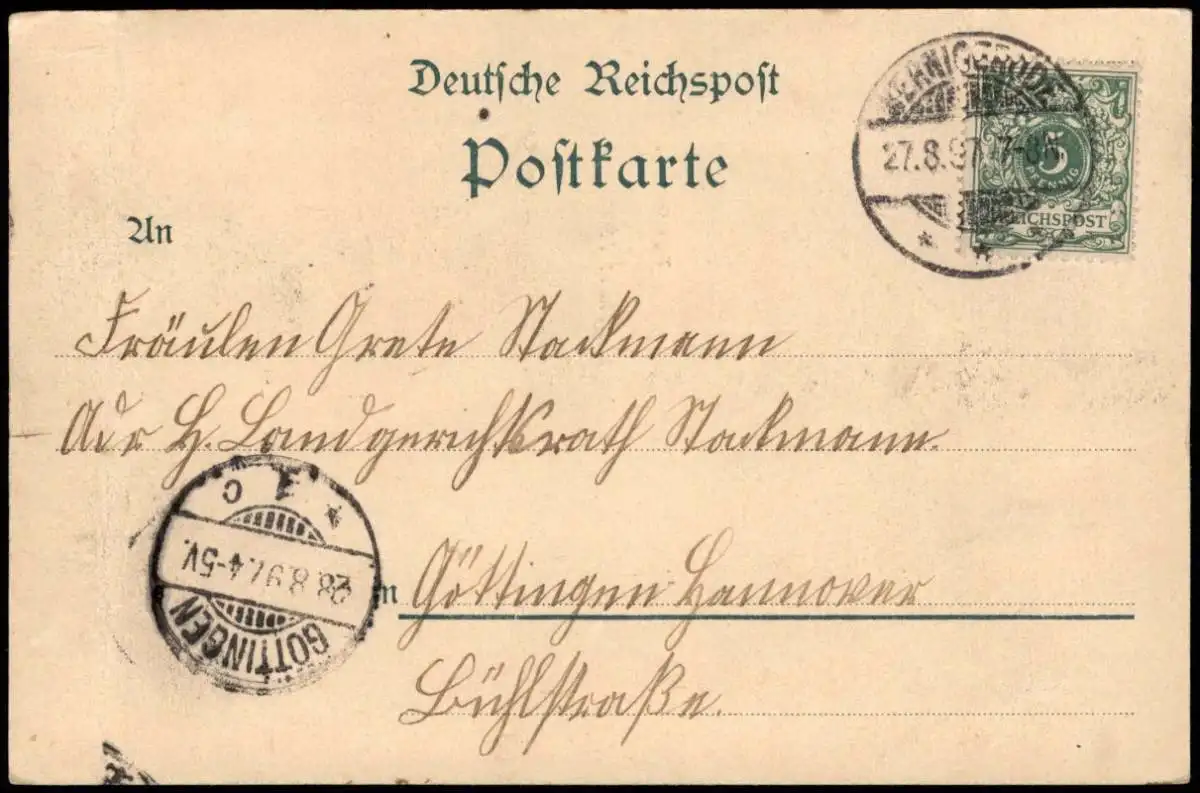 Deutsche Reichspost
Postkarte
WERNIGERODE
27.8.97. 7-8N.
* *
5
PFENNIG
REICHSPOST
An
Fräulen Grete Stackmann
Adr H. Landgerichtsrath Stackmann.
* 1 C
28.8.97. 4-5V.
GÖTTINGEN
in Göttingen Hannover
Bühlstraße.